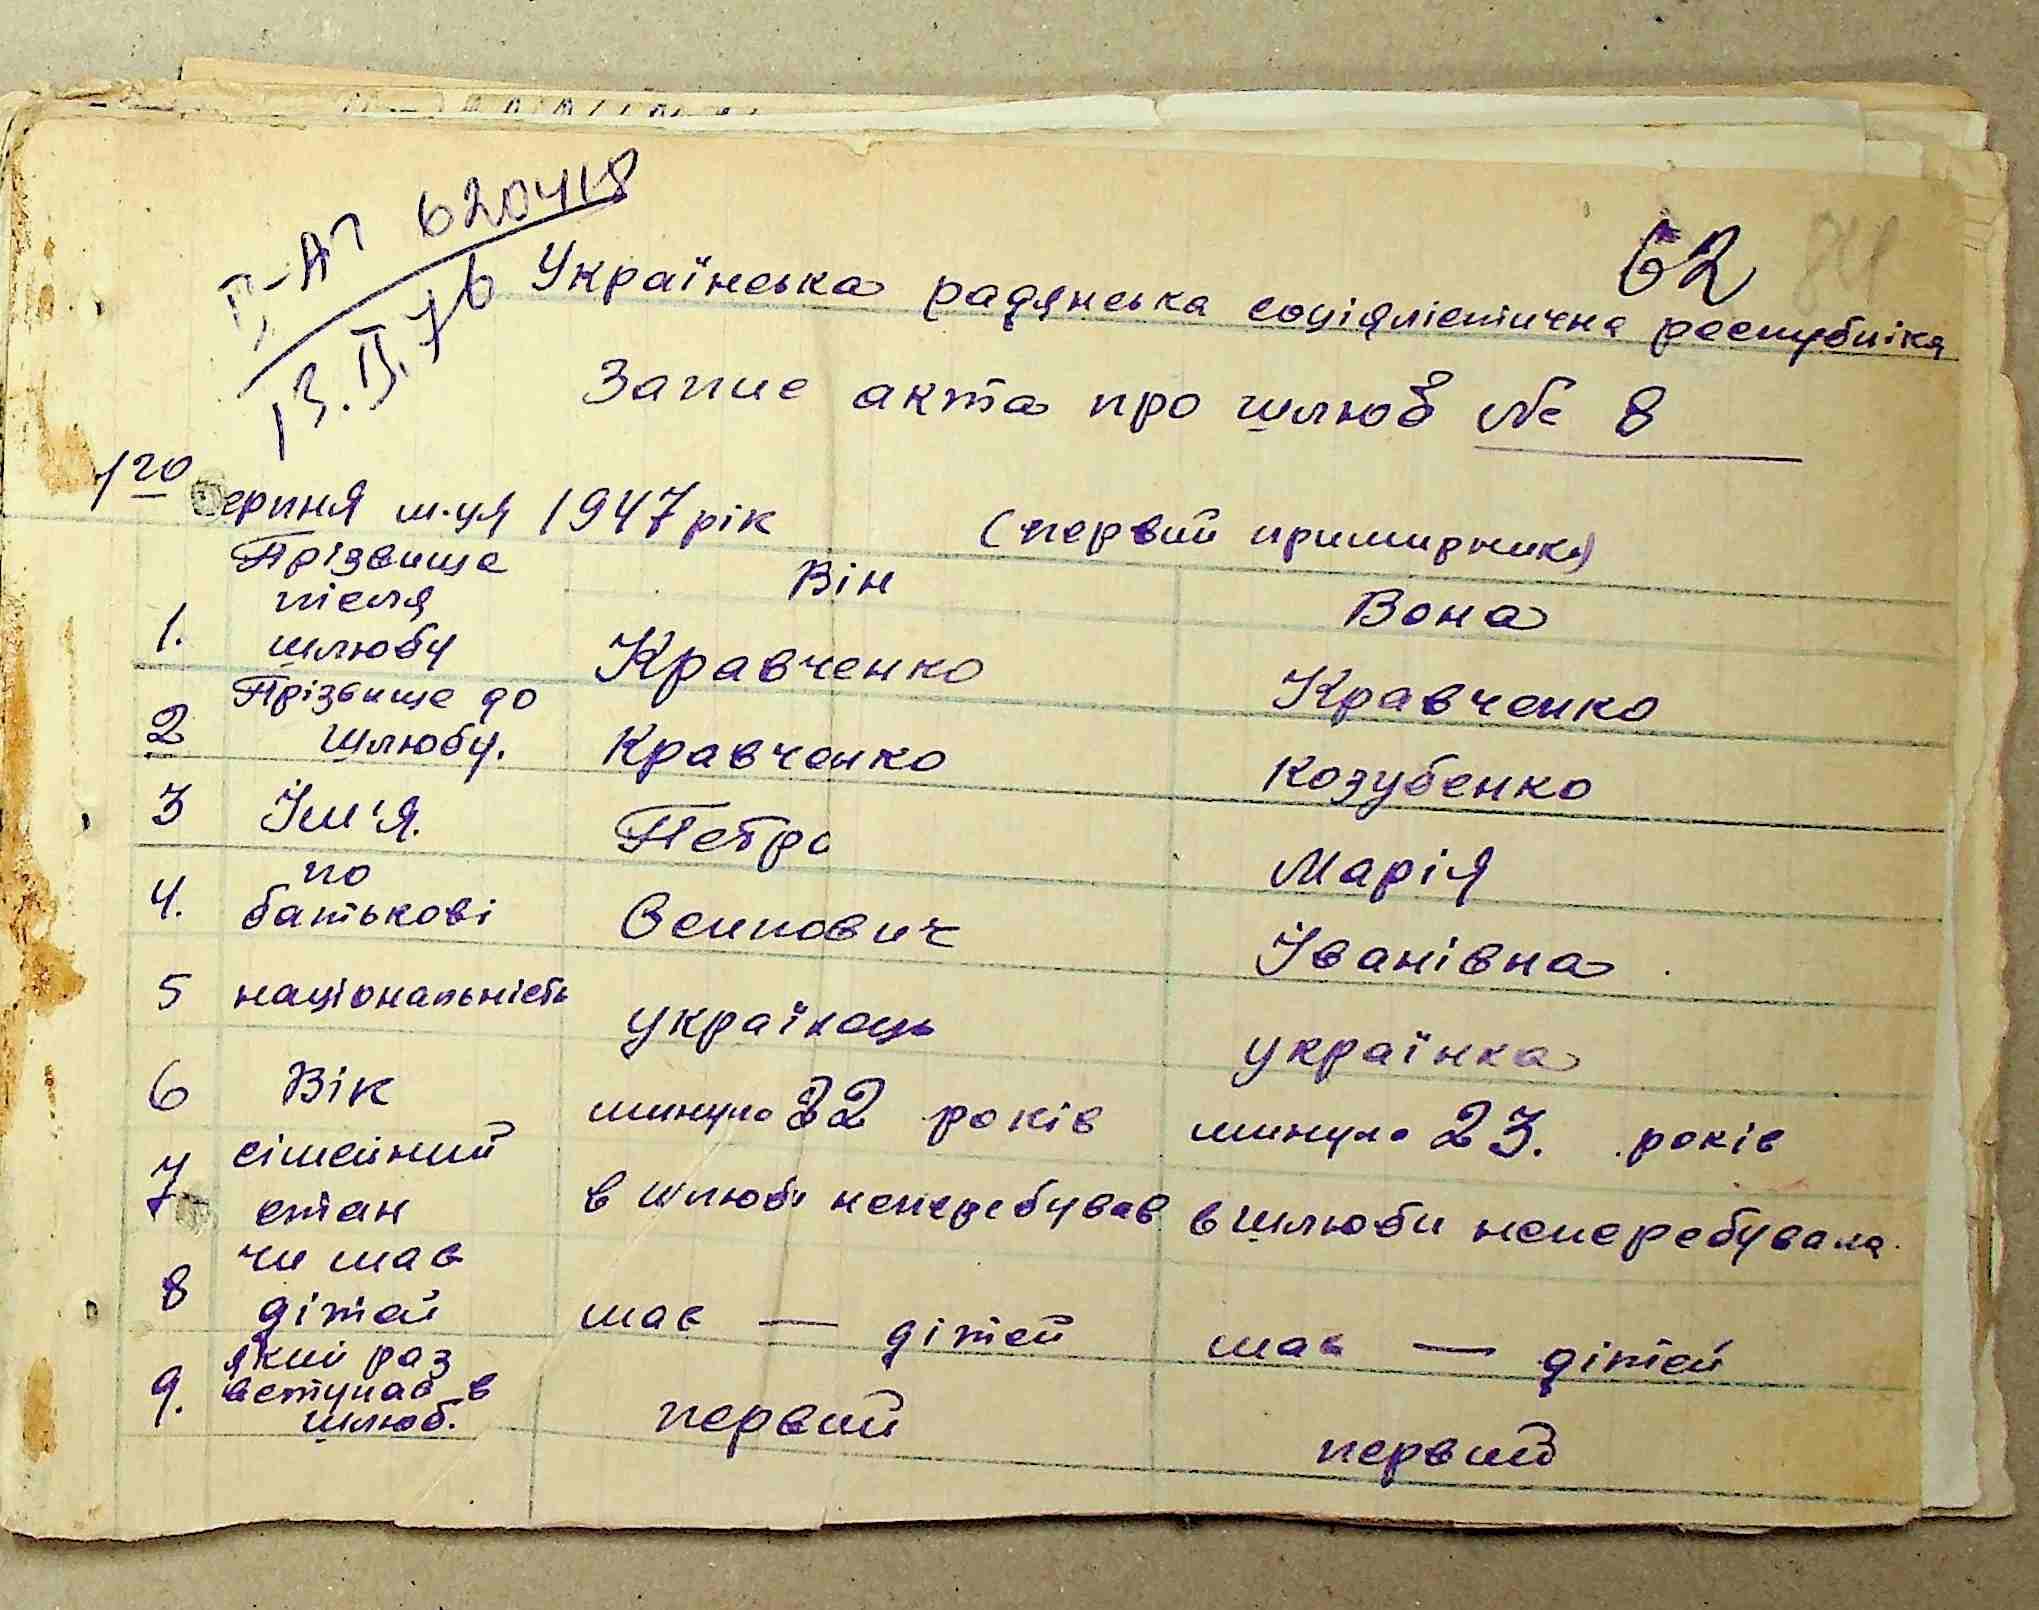 II-АП 620418
13.II.76
62
Українська радянська соціялістична республіка
Запис акта про шлюб № 8
1го серпня м-ця 1947 рік (первий примирник)
Він Вона
1. Прізвище після шлюбу Кравченко Кравченко
2 Прізвище до шлюбу. Кравченко Козубенко
3 Їм'я. Петро Марія
4. по батькові Осипович Їванівна
5 національність українець українка
6 Вік минуло 22 років минуло 23. років
7 сімейний стан в шлюбі неперебував в шлюби неперебувала
8 чи мав дітей мав — дітей мав — дітей
9. який раз вступав в шлюб. первий первий